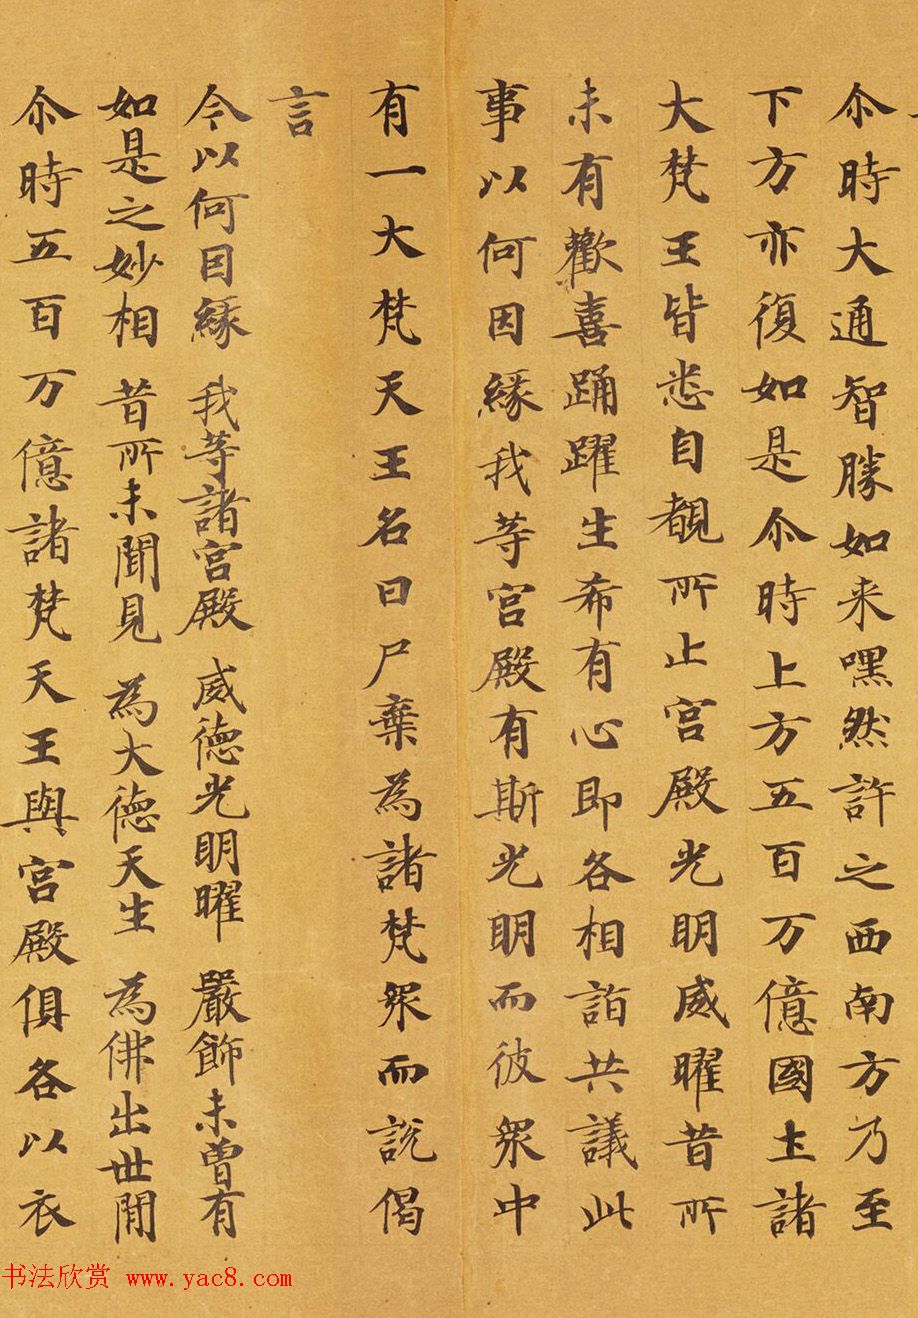 尒時大通智勝如来嘿然許之西南方乃至
下方亦復如是尒時上方五百万億國土諸
大梵王皆悉自覩所止宫殿光明威曜昔所
未有歡喜踊躍生希有心即各相詣共議此
事以何因緣我等宫殿有斯光明而彼眾中
有一大梵天王名曰尸棄為諸梵眾而說偈
言
今以何因緣 我等諸宫殿 威德光明曜 嚴飾未曾有
如是之妙相 昔所未聞見 為大德天生 為佛出世間
尒時五百万億諸梵天王與宫殿俱各以衣
书法欣赏 www.yac8.com